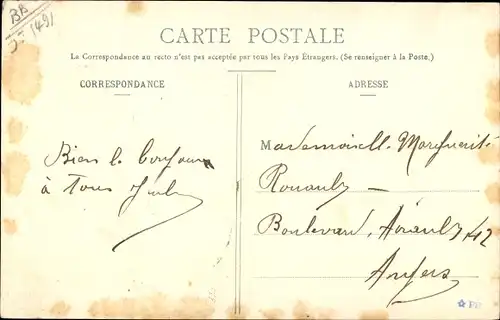 BB
1491
CARTE POSTALE
La Correspondance au recto n'est pas acceptée par tous les Pays Étrangers. (Se renseigner à la Poste.)
CORRESPONDANCE
ADRESSE
Bien le bonjour
à tous
Mademoiselle Marguerite
Rouault
Boulevard 42
Angers